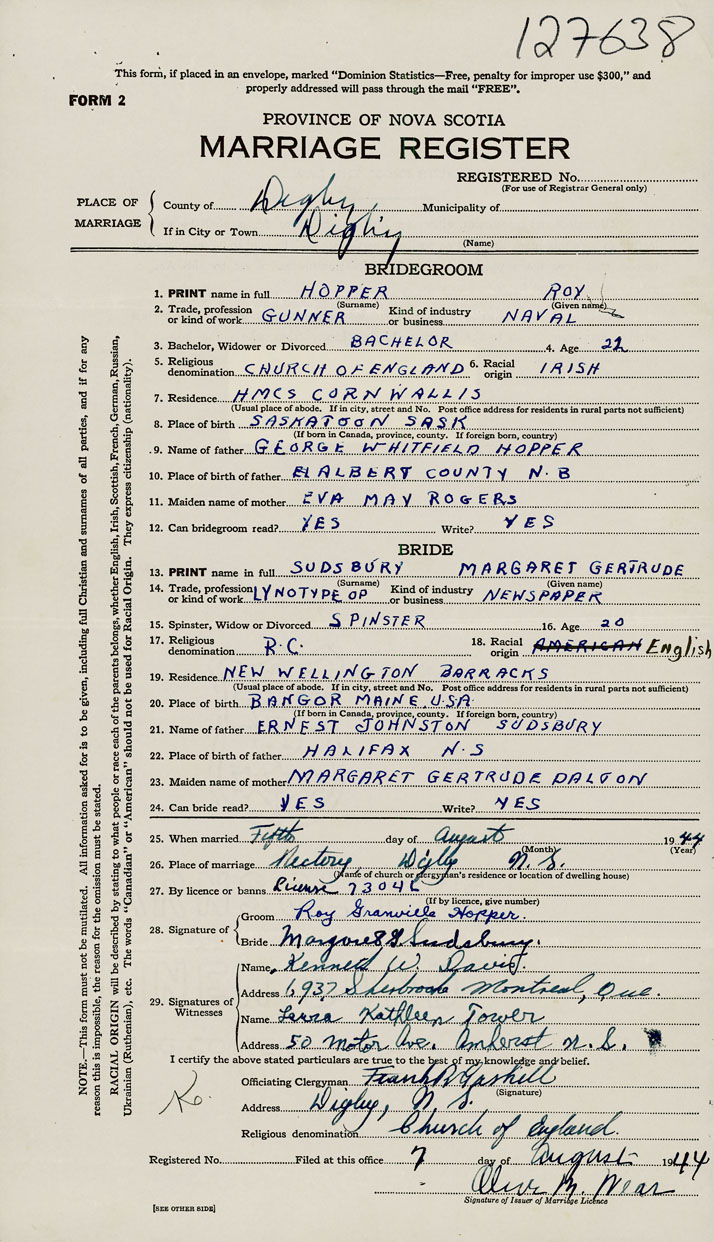 127638
This form, if placed in an envelope, marked "Dominion Statistics—Free, penalty for improper use $300," and
properly addressed will pass through the mail "FREE".
FORM 2
PROVINCE OF NOVA SCOTIA
MARRIAGE REGISTER
REGISTERED No.
(For use of Registrar General only)
PLACE OF MARRIAGE
County of Digby, Municipality of
If in City or Town Digby
(Name)
BRIDEGROOM
1. PRINT name in full HOPPER ROY
(Surname) (Given name)
2. Trade, profession or kind of work GUNNER Kind of industry or business NAVAL
3. Bachelor, Widower or Divorced BACHELOR 4. Age
5. Religious denomination CHURCH OF ENGLAND 6. Racial origin IRISH
7. Residence HMCS CORNWALLIS
(Usual place of abode. If in city, street and No. Post office address for residents in rural parts not sufficient)
8. Place of birth SASKATOON SASK
(If born in Canada, province, county. If foreign born, country)
9. Name of father GEORGE WHITFIELD HOPPER
10. Place of birth of father ALBERT COUNTY N.B
11. Maiden name of mother EVA MAY ROGERS
12. Can bridegroom read? YES Write? YES
BRIDE
13. PRINT name in full SUDSBURY MARGARET GERTRUDE
(Surname) (Given name)
14. Trade, profession or kind of work LYNOTYPE OP Kind of industry or business NEWSPAPER
15. Spinster, Widow or Divorced SPINSTER 16. Age 20
17. Religious denomination R.C. 18. Racial origin AMERICAN English
19. Residence NEW WELLINGTON BARRACKS
(Usual place of abode. If in city, street and No. Post office address for residents in rural parts not sufficient)
20. Place of birth BANGOR MAINE U.S.A.
(If born in Canada, province, county. If foreign born, country)
21. Name of father ERNEST JOHNSTON SUDSBURY
22. Place of birth of father HALIFAX N.S
23. Maiden name of mother MARGARET GERTRUDE DALTON
24. Can bride read? YES Write? YES
25. When married Fifth day of August 1944
(Month) (Year)
26. Place of marriage Rectory Digby N.S.
(Name of church or clergyman's residence or location of dwelling house)
27. By licence or banns License
(If by licence, give number)
28. Signature of
Groom Roy Granville Hopper.
Bride Margaret G. Sudsbury.
29. Signatures of Witnesses
Name Kenneth W. Davis.
Address 6937 Sherbrooke Montreal, Que.
Name Kathleen Tower
Address 50 Motor Ave. Amherst N.S.
I certify the above stated particulars are true to the best of my knowledge and belief.
Officiating Clergyman Frank B Gaskill
(Signature)
Address Digby, N.S.
Religious denomination Church of England.
Registered No. Filed at this office 7 day of August 1944
Olive M. Wear
Signature of Issuer of Marriage Licence
[SEE OTHER SIDE]
NOTE.—This form must not be mutilated. All information asked for is to be given, including full Christian and surnames of all parties, and if for any
reason this is impossible, the reason for the omission must be stated.
RACIAL ORIGIN will be described by stating to what people or race each of the parents belongs, whether English, Irish, Scottish, French, German, Russian,
Ukrainian (Ruthenian), etc. The words "Canadian" or "American" should not be used for Racial Origin. They express citizenship (nationality).